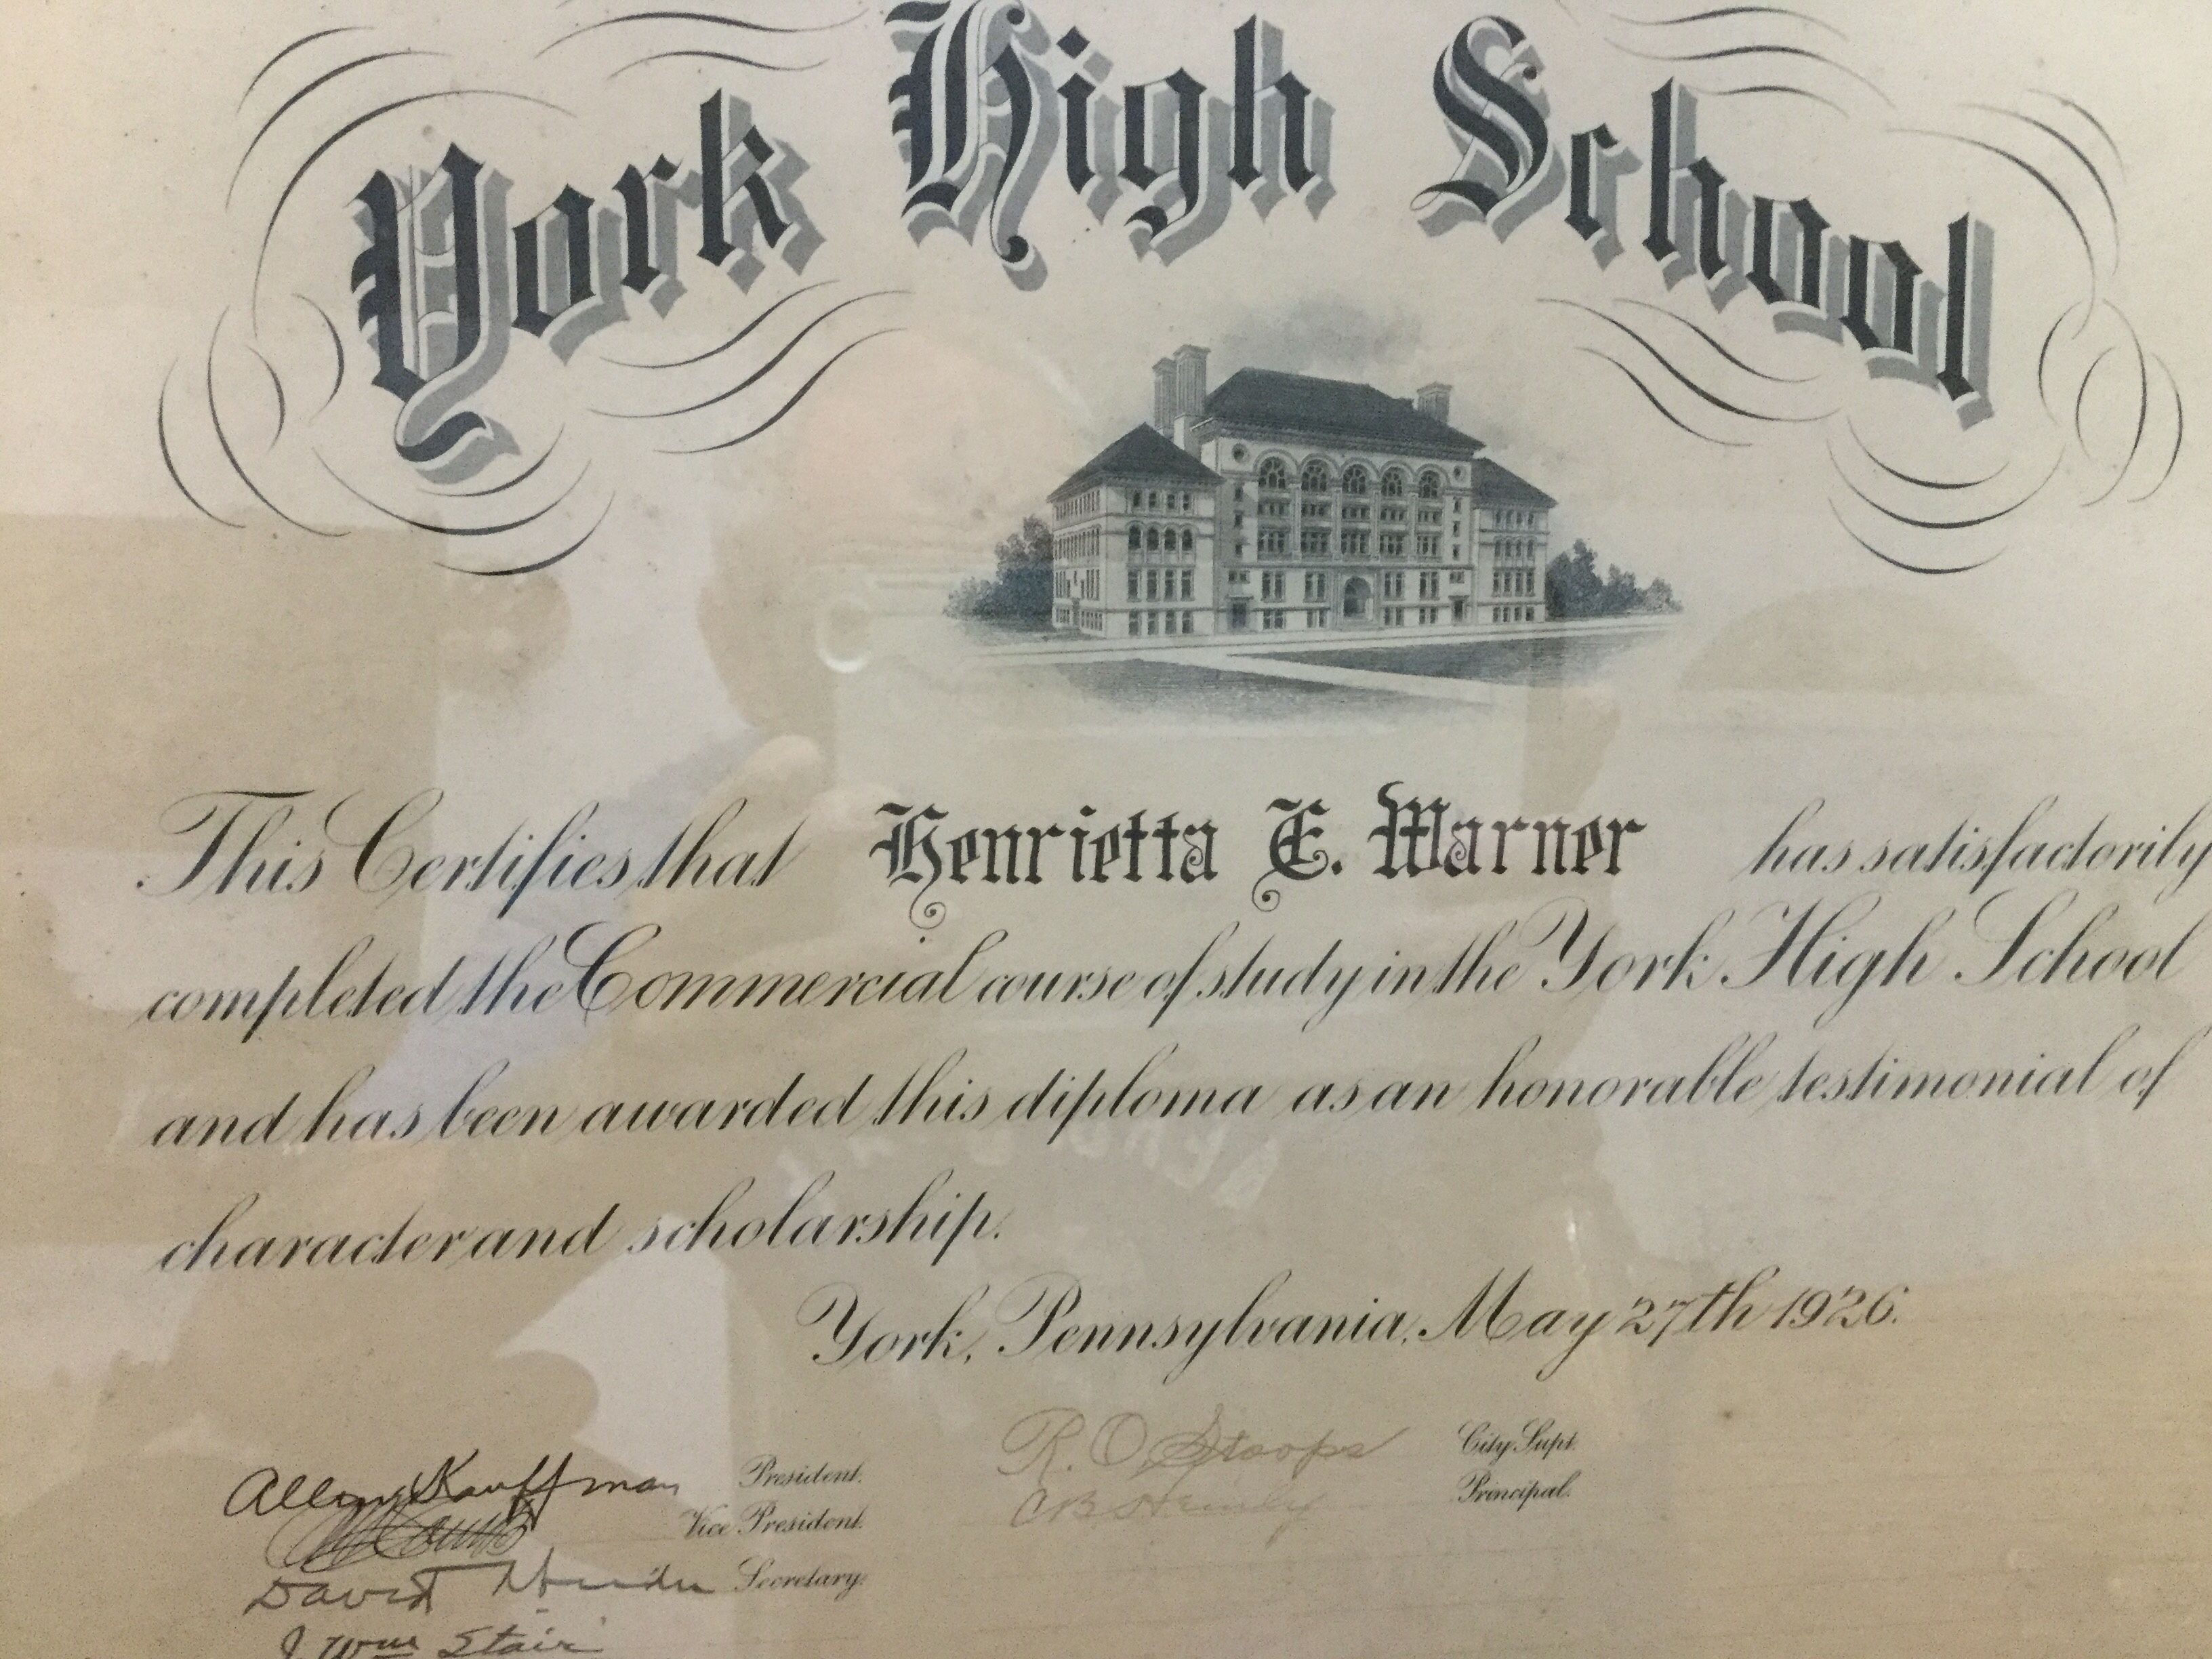 York High School
This Certifies that Henrietta E. Warner has satisfactorily
completed the Commercial course of study in the York High School
and has been awarded this diploma as an honorable testimonial of
character and scholarship.
York, Pennsylvania, May 27th 1926.
Kauffman President.
Vice President.
David Secretary.
J Wm Stair
R. O. Stoops City Supt.
Principal.